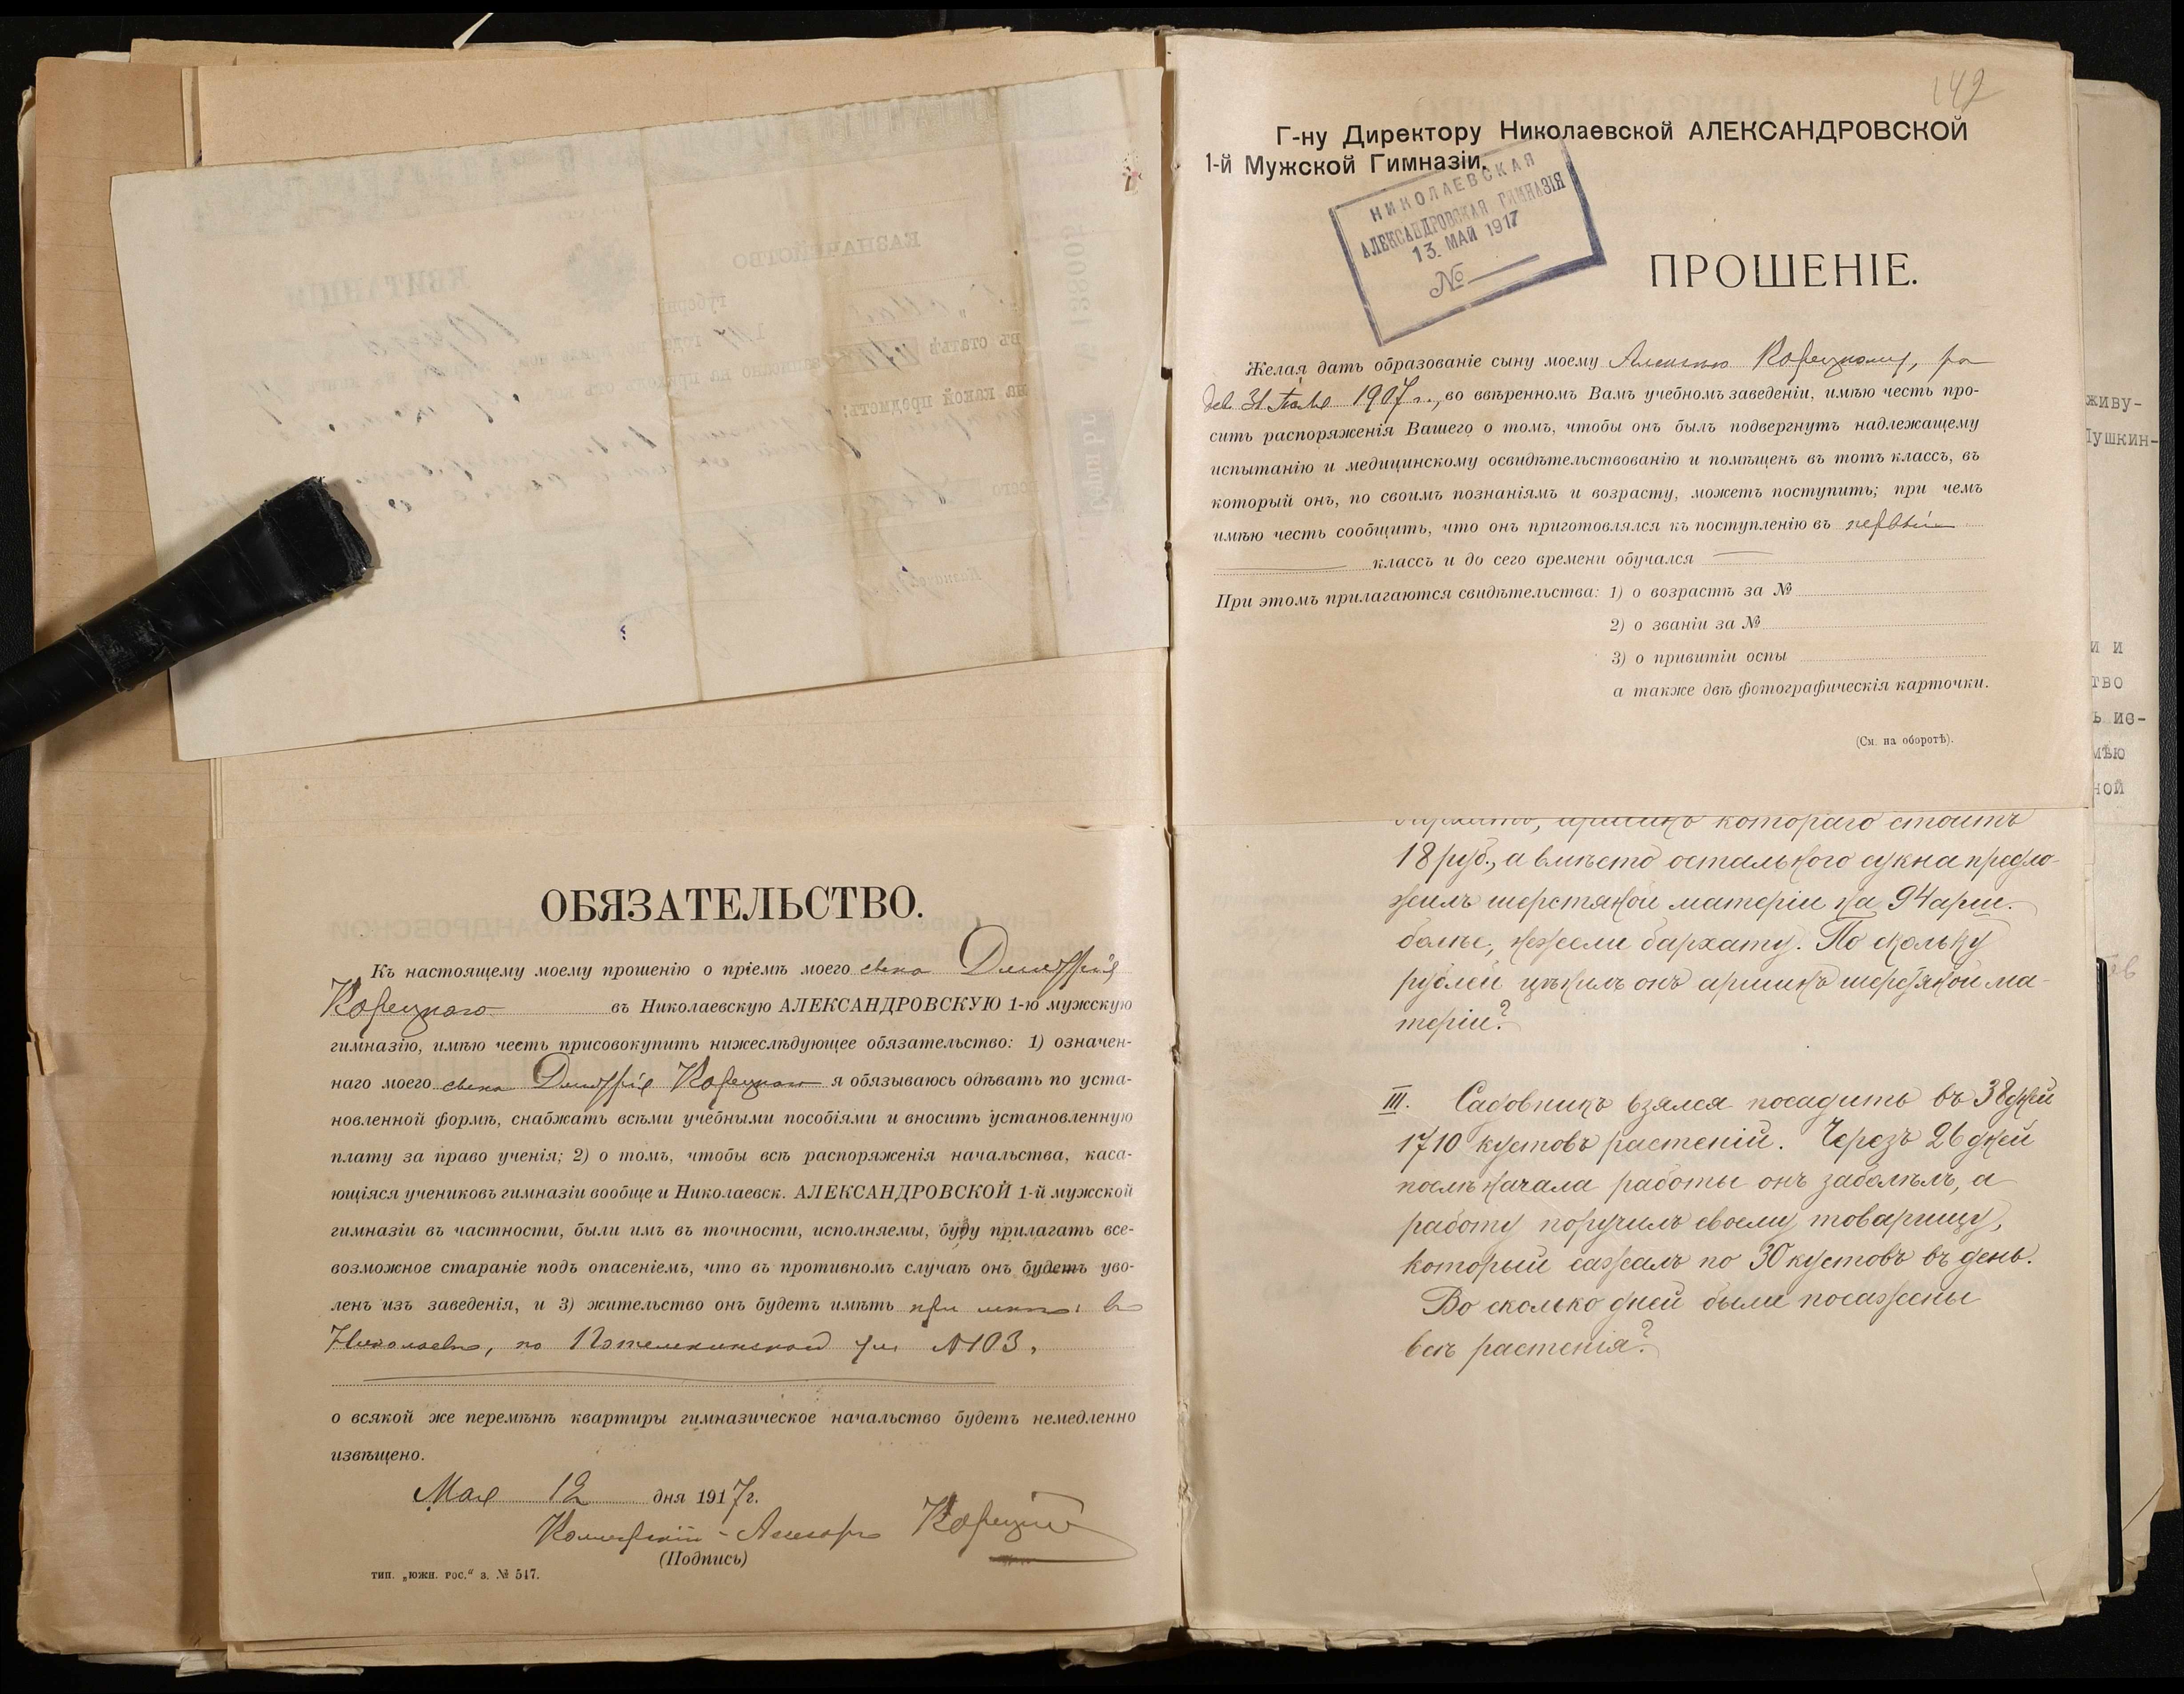 КАЗНАЧЕЙСТВО
КВИТАНЦІЯ
губерніи
въ статьѣ
на какой предметъ:
ОБЯЗАТЕЛЬСТВО.
Къ настоящему моему прошенію о пріемѣ моего сына Дмитрія
Корецкаго въ Николаевскую АЛЕКСАНДРОВСКУЮ 1-ю мужскую
гимназію, имѣю честь присовокупить нижеслѣдующее обязательство: 1) означен-
наго моего сына Дмитрія Корецкаго я обязываюсь одѣвать по уста-
новленной формѣ, снабжать всѣми учебными пособіями и вносить установленную
плату за право ученія; 2) о томъ, чтобы всѣ распоряженія начальства, каса-
ющіяся учениковъ гимназіи вообще и Николаевск. АЛЕКСАНДРОВСКОЙ 1-й мужской
гимназіи въ частности, были имъ въ точности, исполняемы, буду прилагать все-
возможное стараніе подъ опасеніемъ, что въ противномъ случаѣ онъ будетъ уво-
ленъ изъ заведенія, и 3) жительство онъ будетъ имѣть при мнѣ, въ
Николаевѣ, по Потемкинской ул. №103,
о всякой же перемѣнѣ квартиры гимназическое начальство будетъ немедленно
извѣщено.
Мая 12 дня 1917г.
Коллежскій-Ассесоръ Корецкій
(Подпись)
тип. „южн. рос.“ з. № 547.
142
Г-ну Директору Николаевской АЛЕКСАНДРОВСКОЙ
1-й Мужской Гимназіи.
НИКОЛАЕВСКАЯ
АЛЕКСАНДРОВСКАЯ ГИМНАЗІЯ
13. МАЙ 1917
№
ПРОШЕНІЕ.
Желая дать образованіе сыну моему Алексѣю Корецкому, ро
31 1907 г., во ввѣренномъ Вамъ учебномъ заведеніи, имѣю честь про-
сить распоряженія Вашего о томъ, чтобы онъ былъ подвергнутъ надлежащему
испытанію и медицинскому освидѣтельствованію и помѣщенъ въ тотъ классъ, въ
который онъ, по своимъ познаніямъ и возрасту, можетъ поступить; при чемъ
имѣю честь сообщить, что онъ приготовлялся къ поступленію въ первый
классъ и до сего времени обучался
При этомъ прилагаются свидѣтельства: 1) о возрастѣ за №
2) о званіи за №
3) о привитіи оспы
а также двѣ фотографическія карточки.
(См. на оборотѣ).
бархату, аршинъ котораго стоитъ
18 руб., а вмѣсто остального сукна предло-
жилъ шерстяной матеріи на 94 арш.
болѣе, нежели бархату. По скольку
рублей цѣнилъ онъ аршинъ шерстяной ма-
теріи?
III. Садовникъ взялся посадить въ 38 дней
1710 кустовъ растеній. Черезъ 26 дней
послѣ начала работы онъ заболѣлъ, а
работу поручилъ своему товарищу,
который сажалъ по 30 кустовъ въ день.
Во сколько дней были посажены
всѣ растенія?
живу-
Пушкин-
и и
тво
ь ис-
мѣю
ной